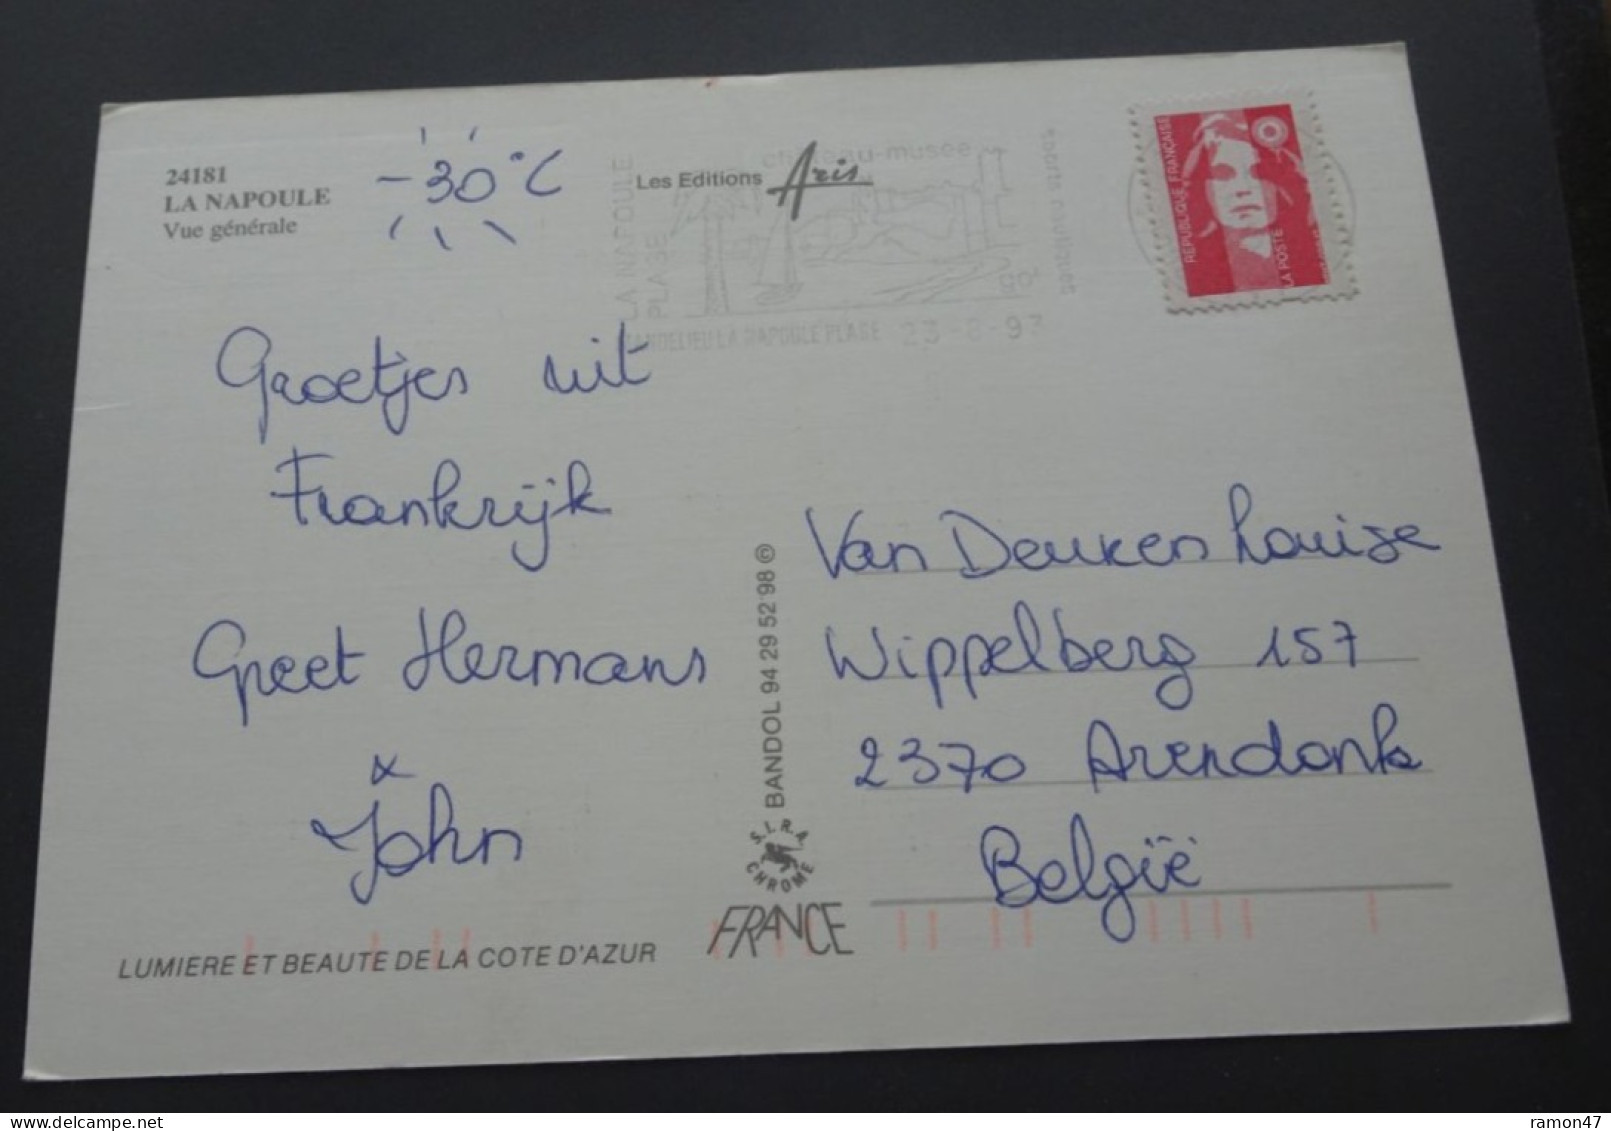 24181
LA NAPOULE
Vue générale
- 30°C
Les Editions Aris
château-musée
LA NAPOULE
PLAGE
sports nautiques
LA NAPOULE PLAGE 23-8-93
REPUBLIQUE FRANÇAISE
LA POSTE
Groetjes uit
Frankrijk
Greet Hermans
x
John
Van Deuren Louise
Wippelberg 157
2370 Arendonk
België
BANDOL 94 29 52 98 ©
S.I.R.A.
CHROME
FRANCE
LUMIERE ET BEAUTE DE LA COTE D'AZUR
ramon47